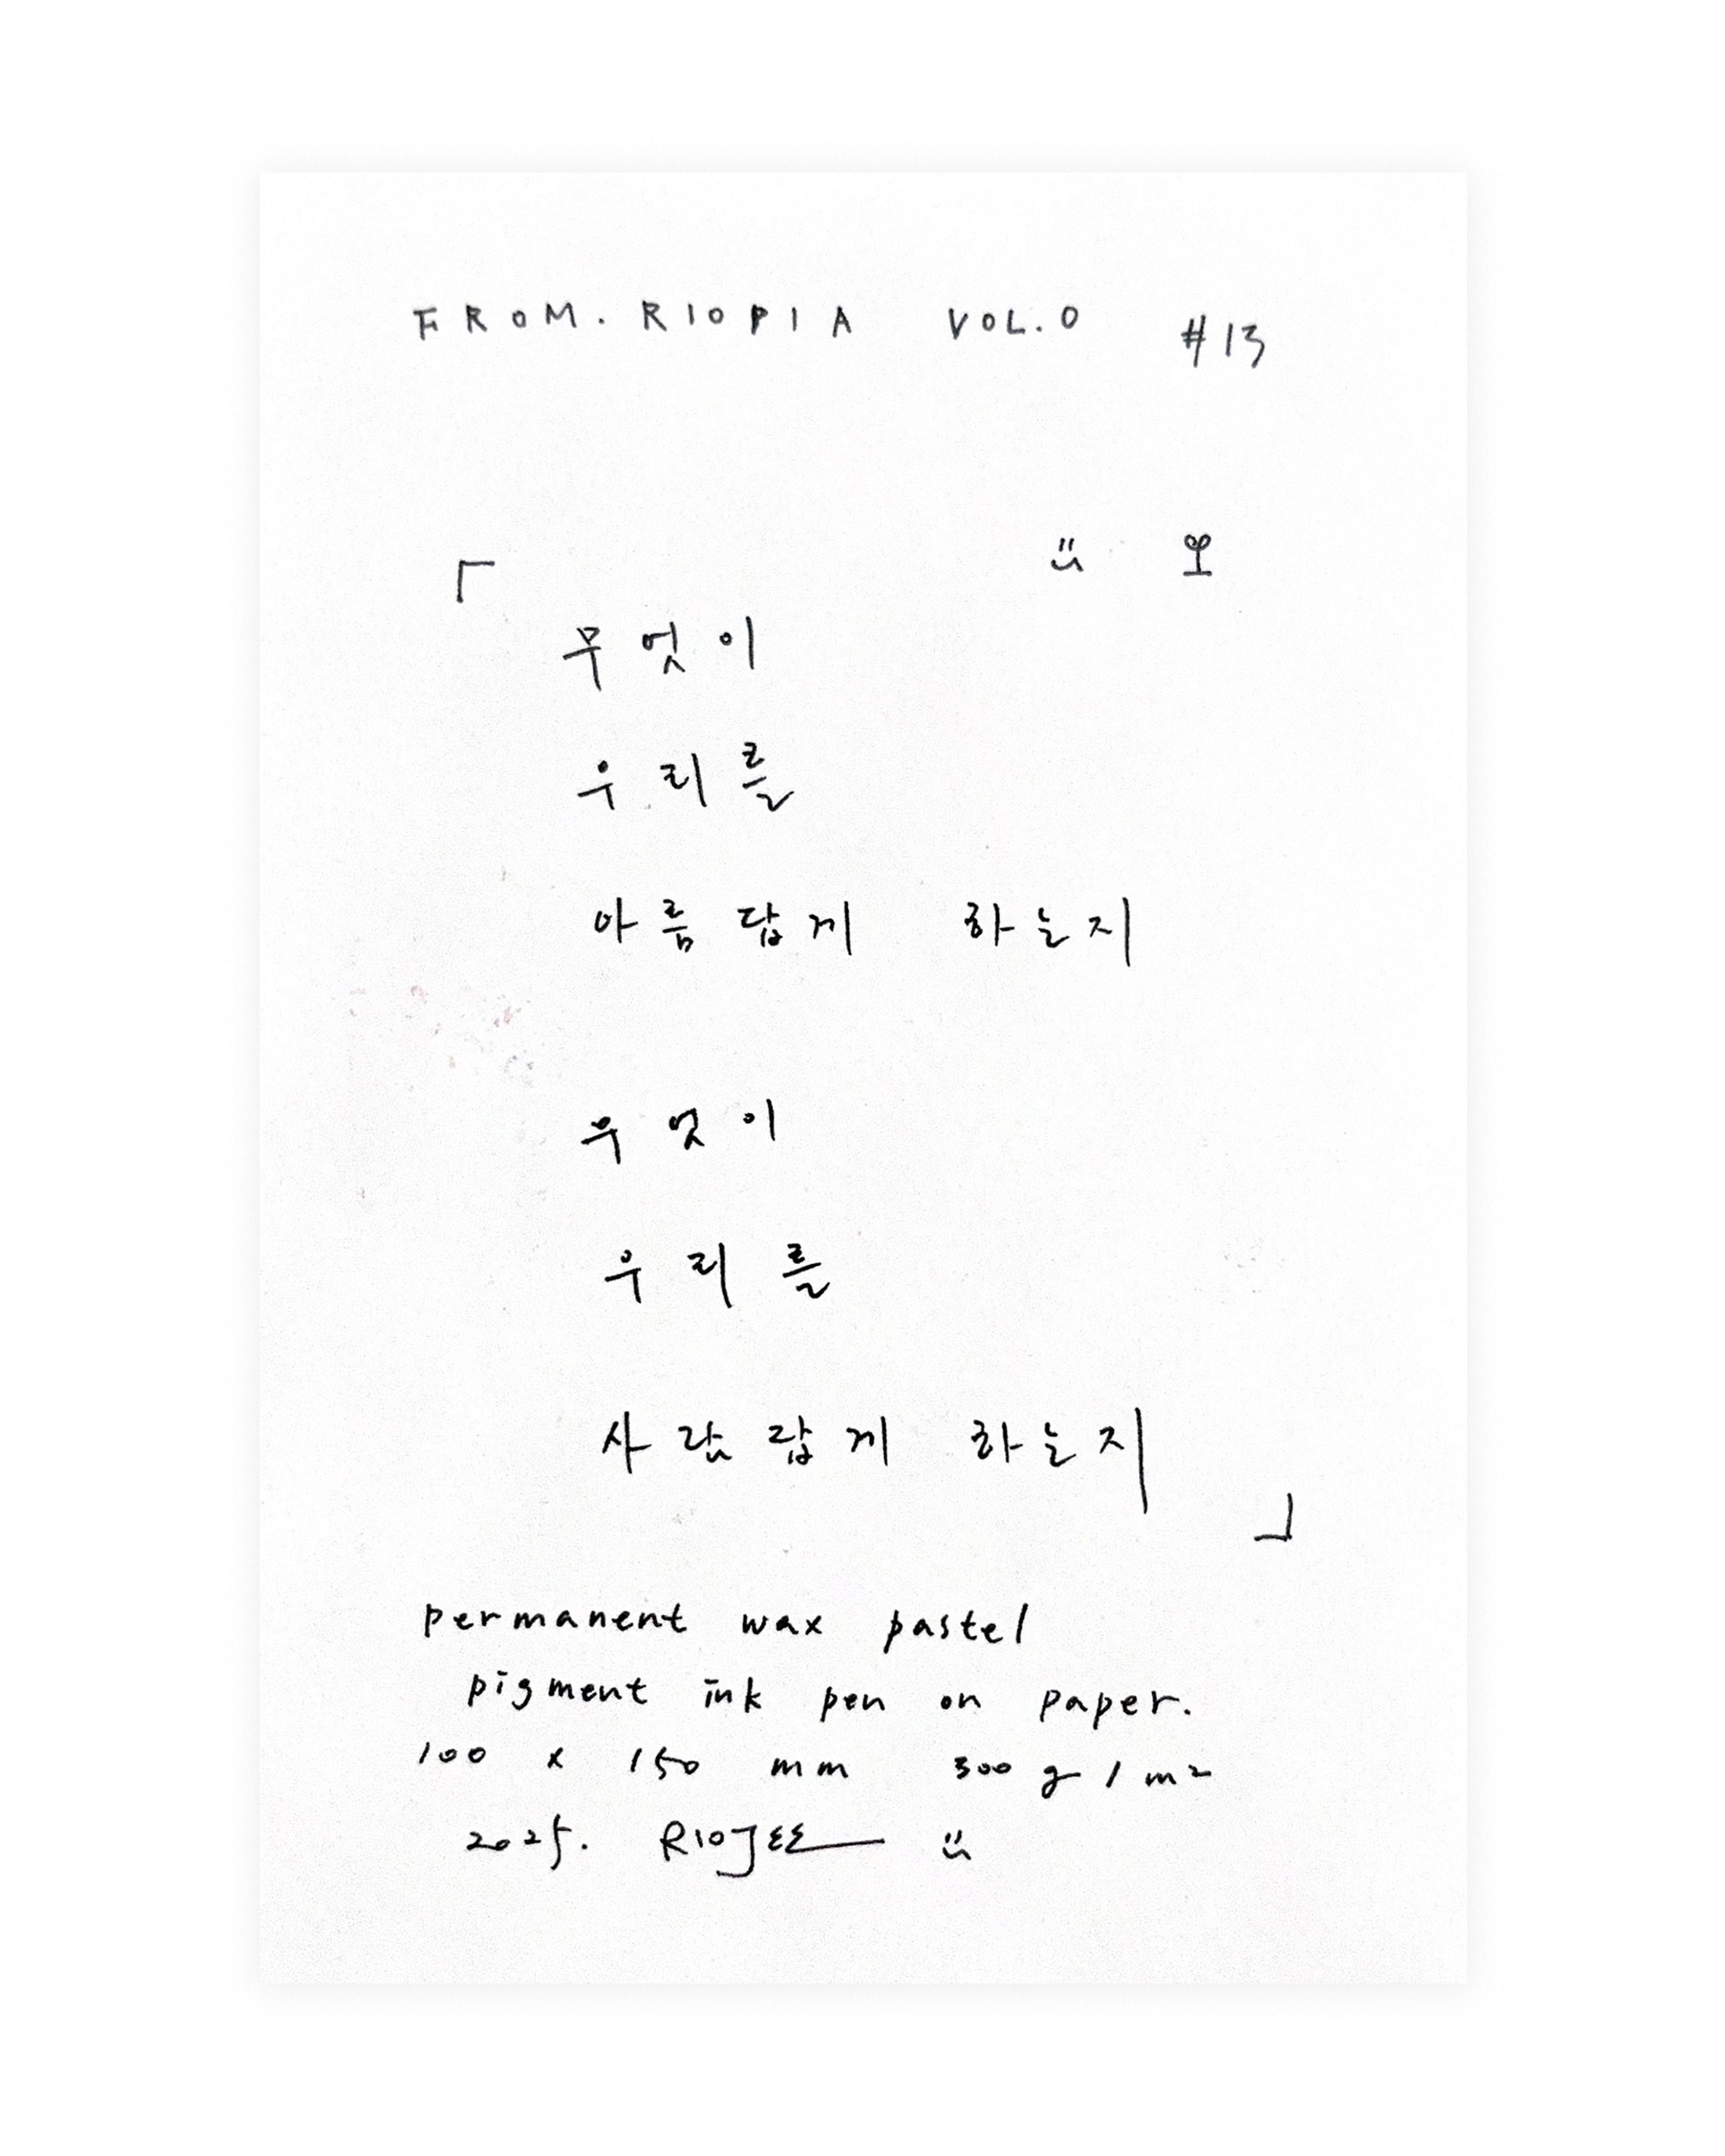 FROM. RIOPIA VOL.0 #13
「
무엇이
우리를
아름답게 하는지
무엇이
우리를
사람답게 하는지
」
permanent wax pastel
pigment ink pen on paper.
100 x 150 mm 300 g / m²
2025. RIOJEE